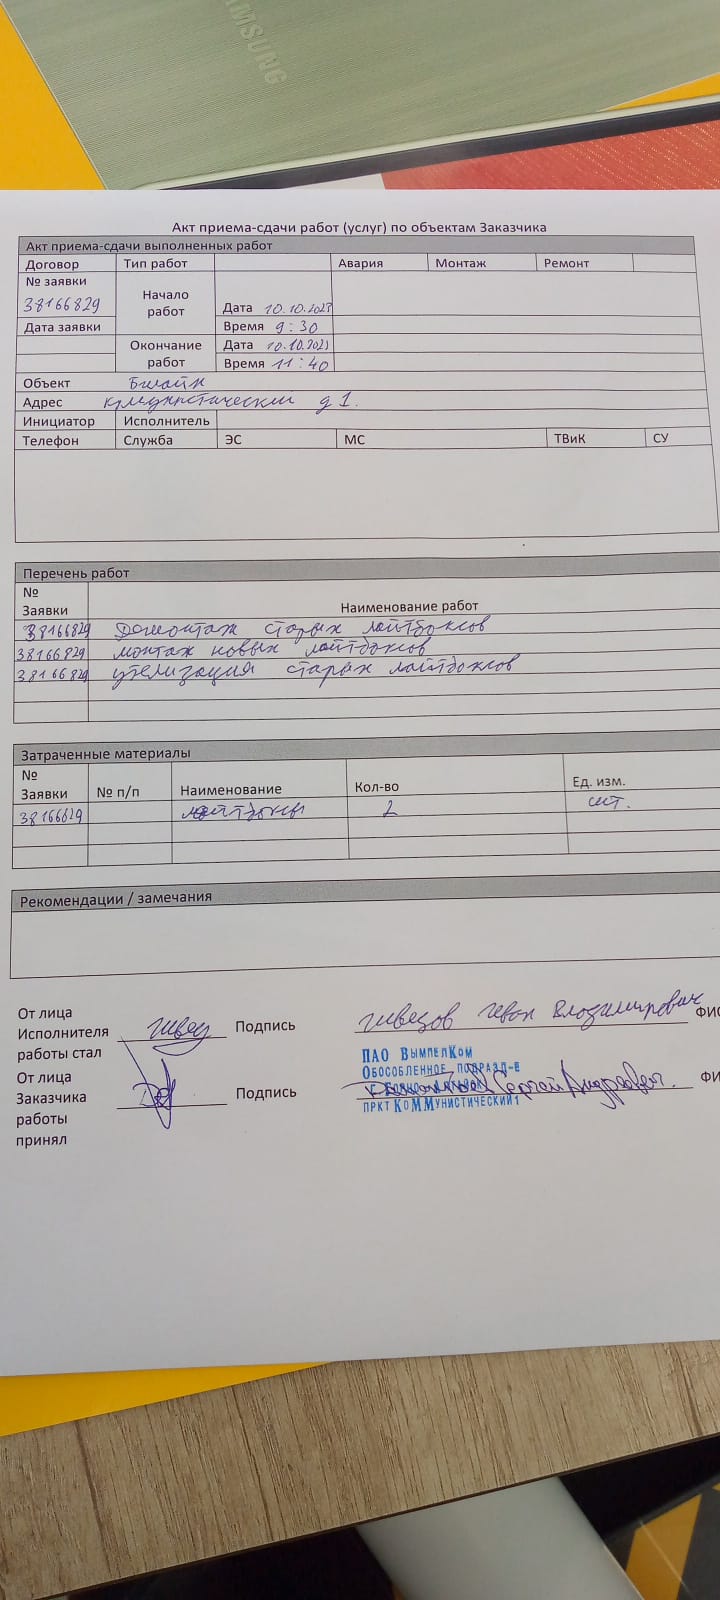 SAMSUNG
Акт приема-сдачи работ (услуг) по объектам Заказчика
Акт приема-сдачи выполненных работ
Договор Тип работ Авария Монтаж Ремонт
№ заявки
38166829
Начало работ
Дата 10.10.2023
Дата заявки
Время 9:30
Окончание работ
Дата 10.10.2023
Время 11:40
Объект Билайн
Адрес коммунистический д 1.
Инициатор Исполнитель
Телефон Служба ЭС МС ТВиК СУ
Перечень работ
№ Заявки Наименование работ
38166829 Демонтаж старых лайтбоксов
38166829 монтаж новых лайтбоксов
38166829 утелизация старых лайтбоксов
Затраченные материалы
№ Заявки № п/п Наименование Кол-во Ед. изм.
38166829 лайтбоксы 2 шт.
Рекомендации / замечания
От лица
Исполнителя Подпись Швецов Иван Владимирович ФИО
работы стал
ПАО ВымпелКом
Обособленное подразд-е
От лица
Заказчика Подпись Сергей Андреевич. ФИ
пркт Коммунистический 1
работы
принял